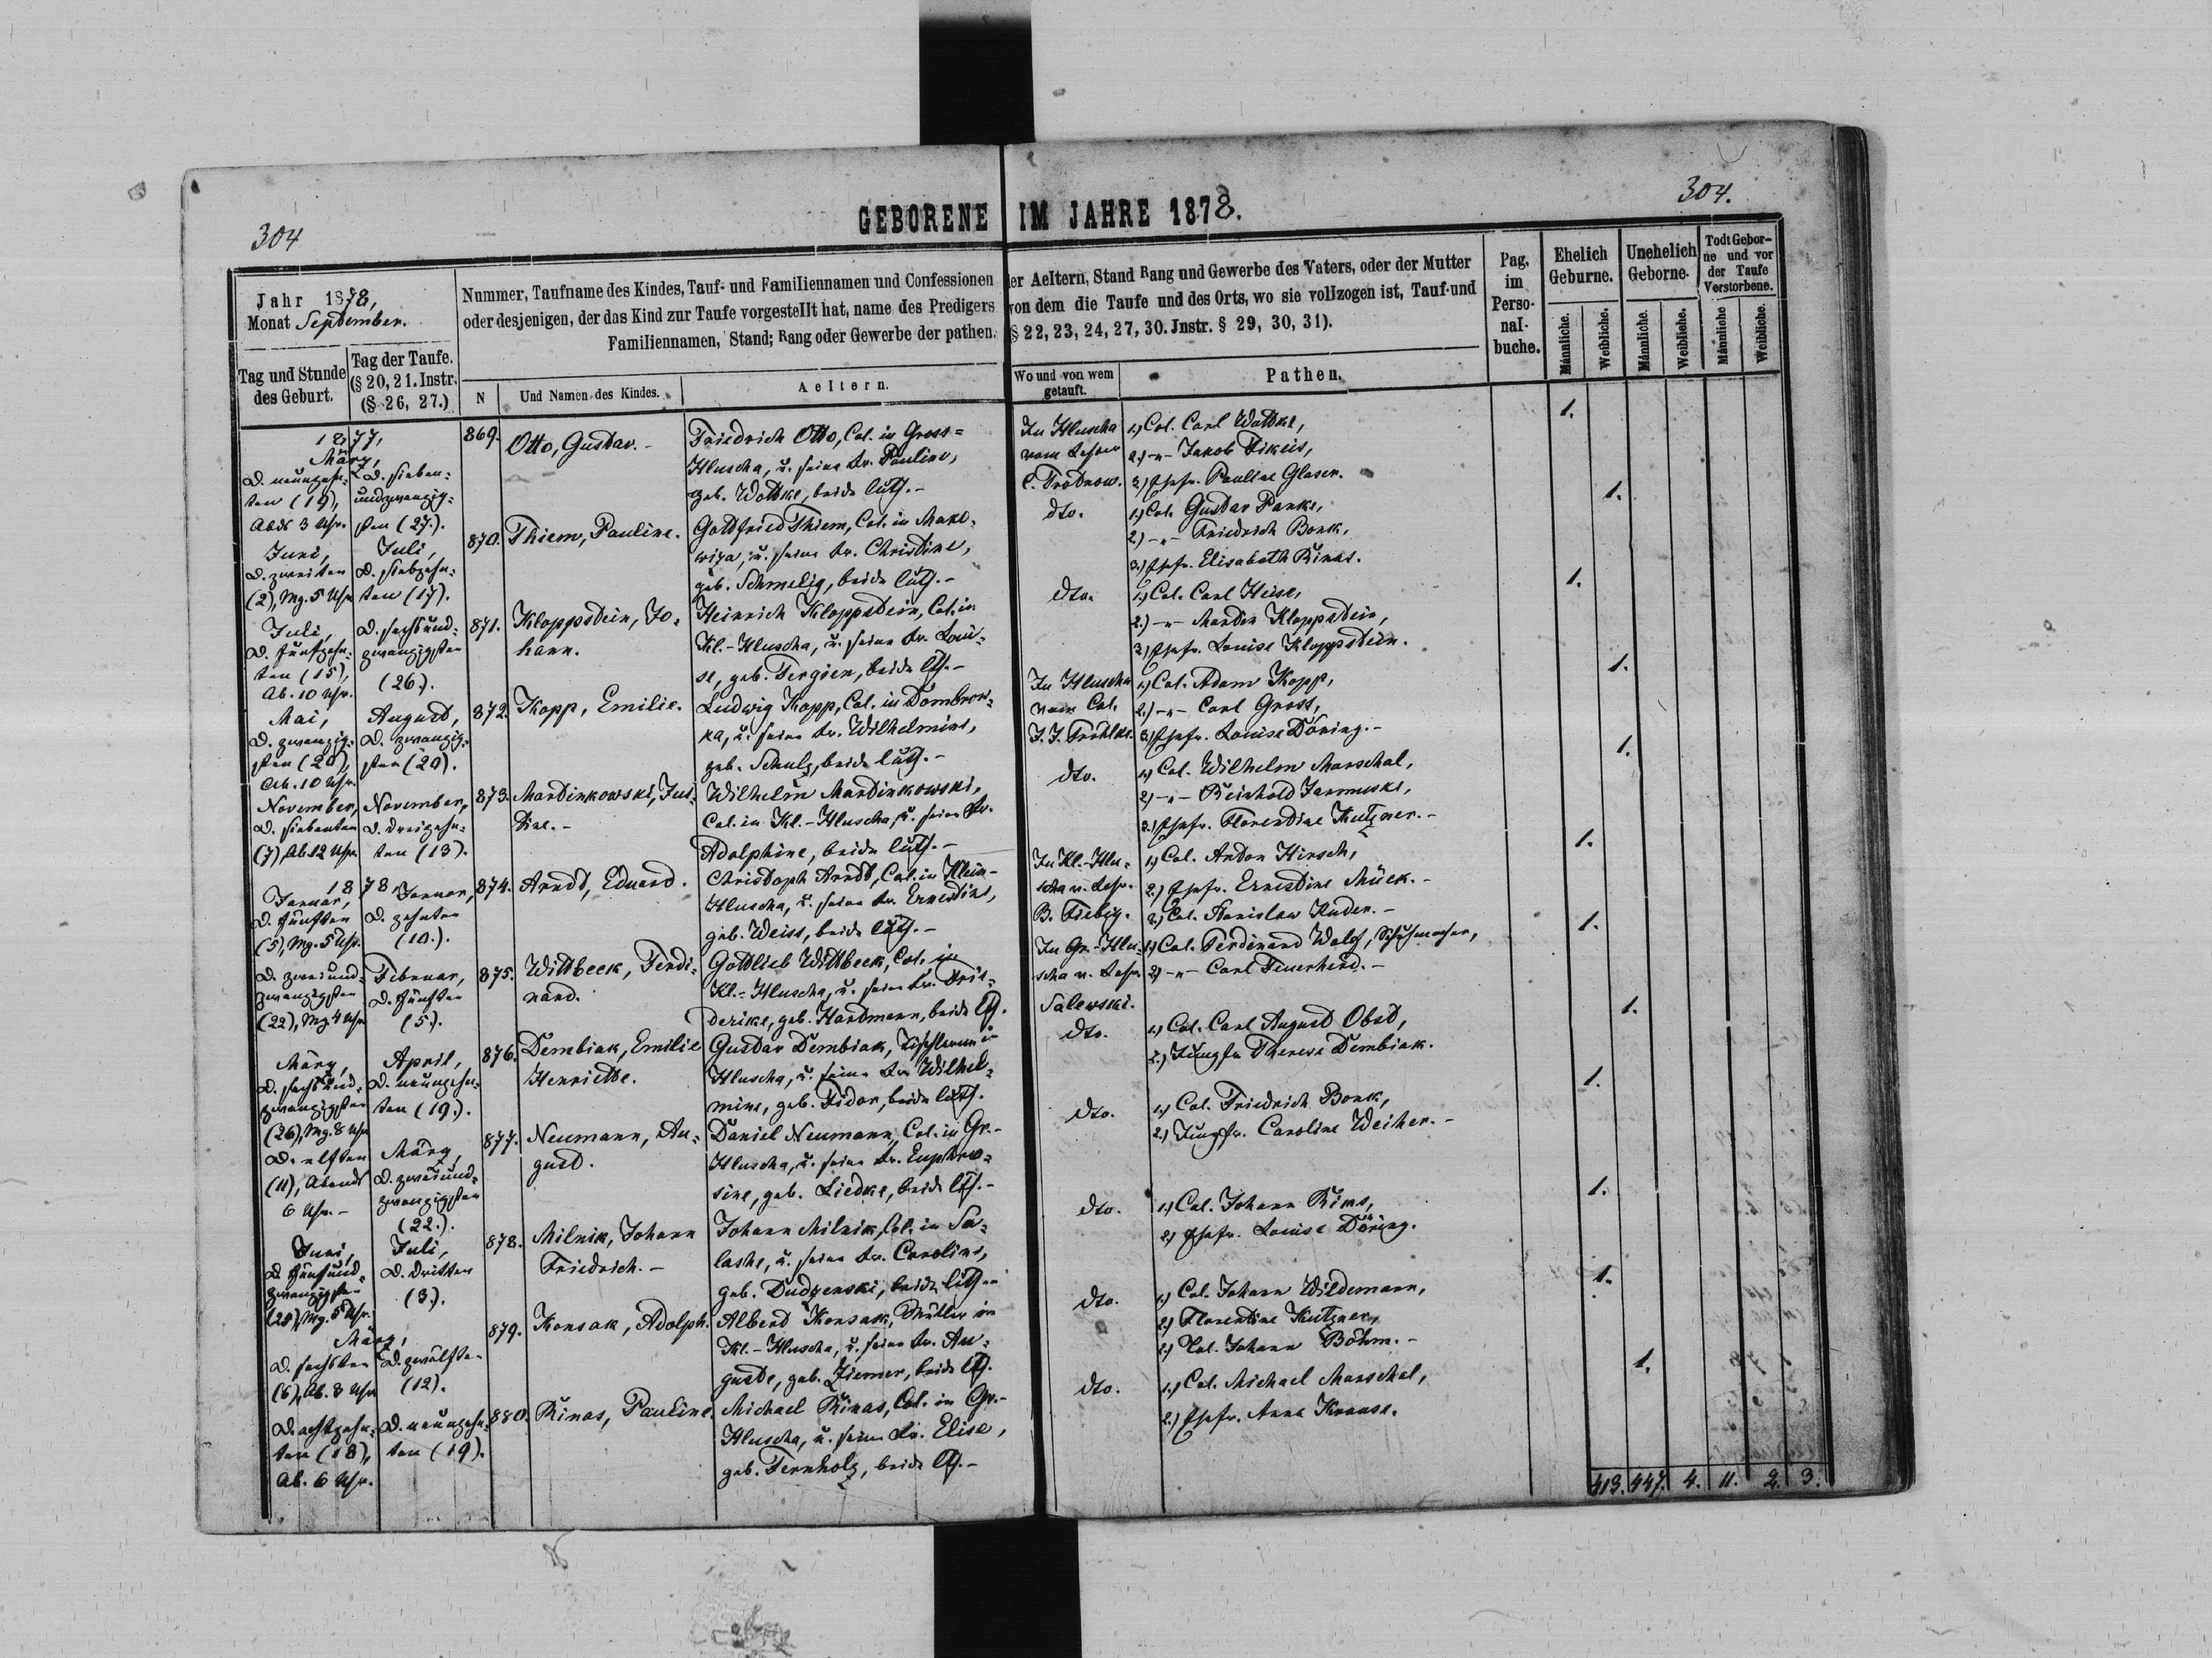 304
GEBORENE IM JAHRE 1878.
304.
Jahr 1878,
Monat September.
Nummer, Taufname des Kindes, Tauf- und Familiennamen und Confessionen der Aeltern, Stand Rang und Gewerbe des Vaters, oder der Mutter
oder desjenigen, der das Kind zur Taufe vorgestellt hat, name des Predigers von dem die Taufe und des Orts, wo sie vollzogen ist, Tauf-und
Familiennamen, Stand; Rang oder Gewerbe der pathen. (§ 22, 23, 24, 27, 30. Jnstr. § 29, 30, 31).
Pag.
im
Perso-
nal-
buche.
Ehelich
Geburne.
Unehelich
Geborne.
Todt Gebor-
ne und vor
der Taufe
Verstorbene.
Männliche.
Weibliche.
Männliche.
Weibliche.
Männliche
Weibliche.
Tag und Stunde
des Geburt.
Tag der Taufe.
(§ 20, 21. Instr.
(§ 26, 27.)
N
Und Namen des Kindes.
Aeltern.
Wo und von wem
getauft.
Pathen.
1877,
März,
D. neunzehn-
ten (19),
Abds 3 Uhr.
D. sieben-
undzwanzig-
sten (27.).
869.
Otto, Gustav.-
Friedrich Otto, Col. in Gross=
Hluscha, u. seine Fr. Pauline,
geb. Wottke, beide luth.-
In Hluscha
vom Lehrer
1.) Col. Carl Wottke,
2.) -"- Jakob
3.) Ehefr. Pauline Glaser.
1.
Juni,
D. zweiten
(2), Mg. 5 Uhr
Juli,
D. siebzehn-
ten (17).
870.
Thiem, Pauline.
Gottfried Thiem, Col. in Mako-
wiza, u. seine Fr. Christine,
geb. Schmelig, beide luth.-
dto.
1.) Col. Gustav Panke,
2.) -"- Friedrich Bonk,
3.) Ehefr. Elisabeth Rinas.
1.
Juli,
D. fünfzehn-
ten (15),
Ab. 10 Uhr.
D. sechsund-
zwanzigsten
(26.).
871.
Kloppstein, Jo-
hann.
Heinrich Kloppstein, Col. in
Kl.-Hluscha, u. seine Fr. Loui-
se, geb. Fergien, beide lth.-
dto.
1.) Col. Carl Heise,
2.) -"- Martin Kloppstein,
3.) Ehefr. Louise Kloppstein.
1.
Mai,
D. zwanzig-
sten (20),
Ab. 10 Uhr.
August,
D. zwanzig-
sten (20).
872.
Kopp, Emilie.
Ludwig Kopp, Col. in Dombrow-
ka, u. seine Fr. Wilhelmine,
geb. Schulz, beide luth.-
In Hluscha
vom Col.
1.) Col. Adam Kopp,
2.) -"- Carl Gross,
3.) Ehefr. Louise Döring.-
1.
November,
D. siebenten
(7), Ab. 12 Uhr
November,
D. dreizehn-
ten (13).
873.
Martinkowski, Jus-
tine.-
Wilhelm Martinkowski,
Col. in Kl.-Hluscha, u. seine Fr.
Adolphine, beide luth.-
dto.
1.) Col. Wilhelm Marschal,
2.) -"- Reinhold
3.) Ehefr. Florentine Kutzner.-
1.
1878,
Januar,
D. fünften
(5), Mg. 5 Uhr.
Januar,
D. zehnten
(10.).
874.
Arndt, Eduard.
Christoph Arndt, Col. in Klein-
Hluscha, u. seine Fr. Ernestine,
geb. Weiss, beide luth.-
In Kl.-Hlu-
scha v. Lehr.
B. Fiebig.
1.) Col. Anton Hirsch,
2.) Ehefr. Ernestine Mück.-
3.) Col. Stanislaw Kuder.-
1.
D. zweiund-
zwanzigsten
(22), Mg. 4 Uhr
Februar,
D. fünften
(5.).
875.
Wittbeck, Ferdi-
nand.
Gottlieb Wittbeck, Col. in
Kl.-Hluscha, u. seine Fr. Frie-
derike, geb. Hartmann, beide lth.
In Gr.-Hlu-
scha v. Lehr.
Salewski.
1.) Col. Ferdinand Wolf, Schuhmacher,
2.) -"- Carl Feuerherd.-
1.
März,
D. sechsund-
zwanzigsten
(26), Mg. 8 Uhr
April,
D. neunzehn-
ten (19.).
876.
Dembiak, Emilie
Henriette.
Gustav Dembiak, Tischler in
Hluscha, u. seine Fr. Wilhel-
mine, geb. Fidor, beide luth.
dto.
1.) Col. Carl August Obst,
2.) Jungfr. Therese Dembiak.
1.
D. elften
(11), Abends
6 Uhr.-
März,
D. zweiund-
zwanzigsten
(22.).
877.
Neumann, Au-
gust.
Daniel Neumann, Col. in Gr.-
Hluscha, u. seine Fr. Euphro-
sine, geb. Liedke, beide lth.-
dto.
1.) Col. Friedrich Bonk,
2.) Jungfr. Caroline Weiher.-
1.
Juni,
D. fünfund-
zwanzigsten
(25), Mg. 5 Uhr.
Juli,
D. dritten
(3.).
878.
Milnik, Johann
Friedrich.-
Johann Milnik, Col. in Sa-
lashe, u. seine Fr. Caroline,
geb. Dudzenski, beide luth.-
dto.
1.) Col. Johann Rinas,
2.) Ehefr. Louise Döring.
1.
März,
D. sechsten
(6), Ab. 8 Uhr
D. zwölften
(12).
879.
Konsak, Adolph.
Albert Konsak, Müller in
Kl.-Hluscha, u. seine Fr. Au-
guste, geb. Ziemer, beide lth.
dto.
1.) Col. Johann Wildemann,
2.) Florentine Kutzner,
3.) Col. Johann Böhm.-
1.
D. achtzehn-
ten (18),
Ab. 6 Uhr.
D. neunzehn-
ten (19).
880.
Rinas, Pauline.
Michael Rinas, Col. in Gr.-
Hluscha, u. seine Fr. Elise,
geb. Fernholz, beide lth.-
dto.
1.) Col. Michael Marschal,
2.) Ehefr. Anna Krause.
1.
413. 447. 4. 11. 2. 3.